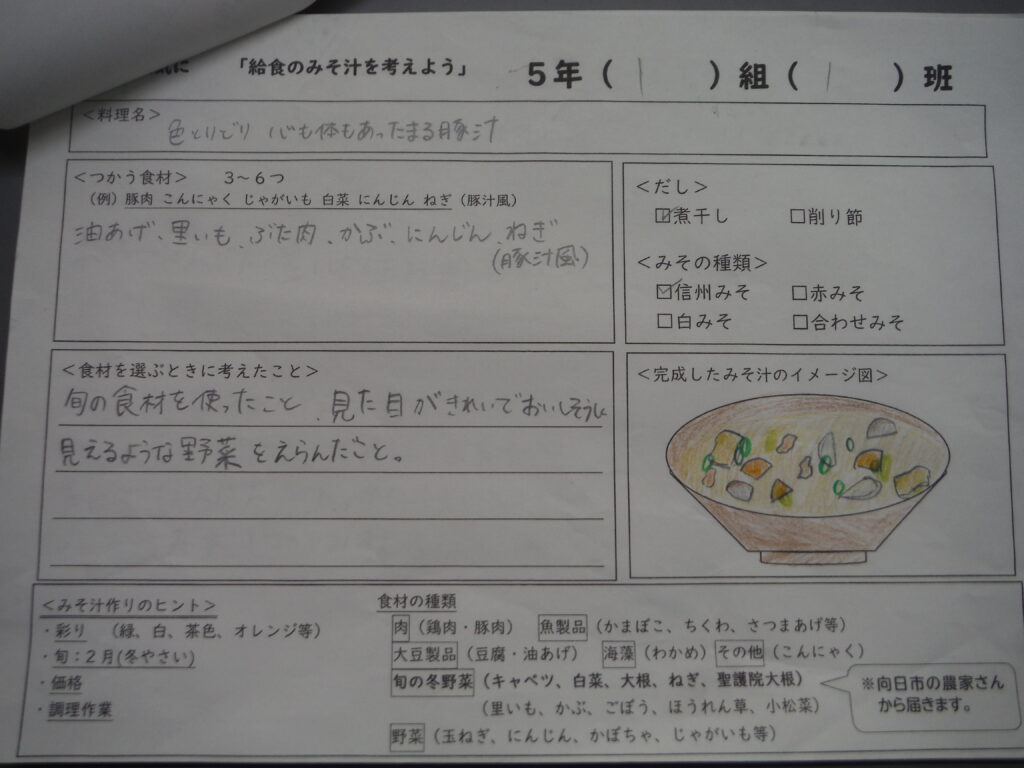 気に 「給食のみそ汁を考えよう」 5年( 1 )組( 1 )班
＜料理名＞
色とりどり 心も体もあったまる豚汁
＜つかう食材＞ 3～6つ
(例) 豚肉 こんにゃく じゃがいも 白菜 にんじん ねぎ (豚汁風)
油あげ、里いも、ぶた肉、かぶ、にんじん、ねぎ
(豚汁風)
＜だし＞
☑煮干し □削り節
＜みその種類＞
☑信州みそ □赤みそ
□白みそ □合わせみそ
＜食材を選ぶときに考えたこと＞
旬の食材を使ったこと、見た目がきれいでおいしそうに
見えるような野菜をえらんだこと。
＜完成したみそ汁のイメージ図＞
＜みそ汁作りのヒント＞
・彩り (緑、白、茶色、オレンジ等)
・旬：2月(冬やさい)
・価格
・調理作業
食材の種類
肉 (鶏肉・豚肉) 魚製品 (かまぼこ、ちくわ、さつまあげ等)
大豆製品 (豆腐・油あげ) 海藻 (わかめ) その他 (こんにゃく)
旬の冬野菜 (キャベツ、白菜、大根、ねぎ、聖護院大根)
(里いも、かぶ、ごぼう、ほうれん草、小松菜)
野菜 (玉ねぎ、にんじん、かぼちゃ、じゃがいも等)
※向日市の農家さん
から届きます。